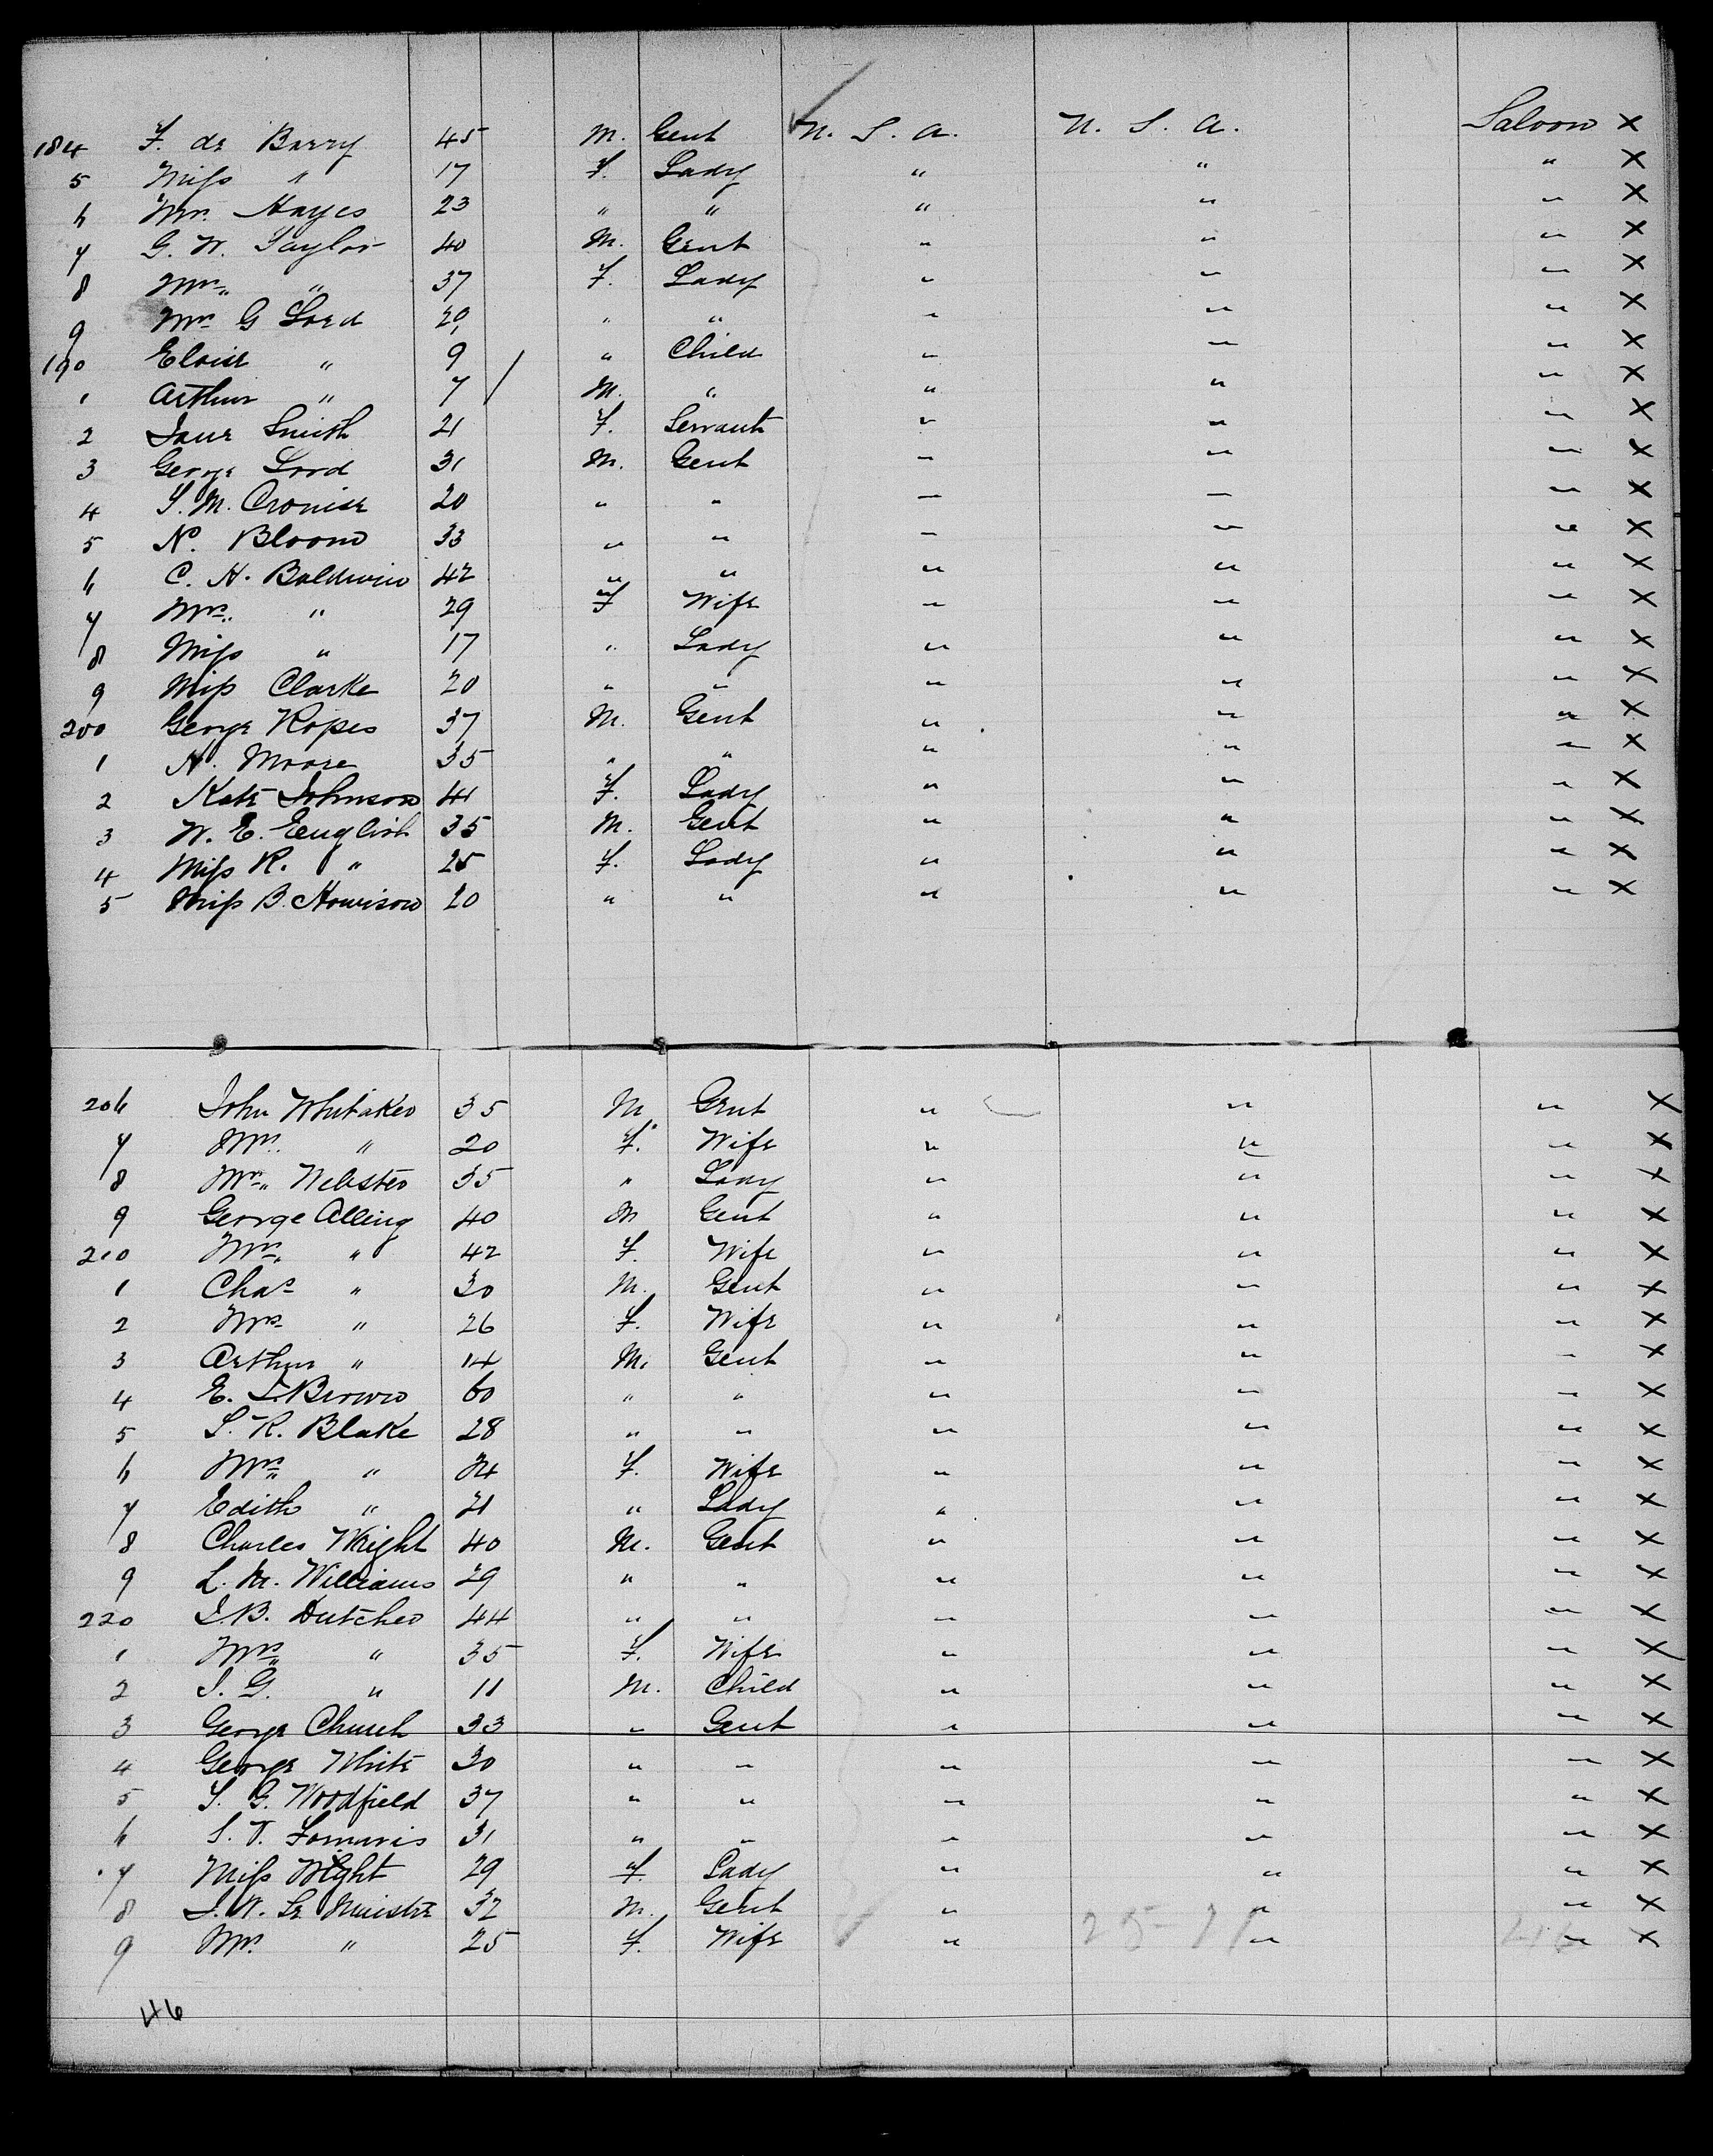 184 F. de Barry 45 M. Gent U. S. A. U. S. A. Saloon X
5 Miss " 17 F. Lady " " " X
6 Mrs. Hayes 23 " " " " " X
7 G. W. Taylor 40 M. Gent " " " X
8 Mrs. " 37 F. Lady " " " X
9 Mrs G Lord 20 " " " " " X
190 Eloise " 9 " Child " " " X
1 Arthur " 7 M. " " " " X
2 Jane Smith 21 F. Servant " " " X
3 George Lord 31 M. Gent " " " X
4 S. M. Cronise 20 " " " " " X
5 N. Bloom 33 " " " " " X
6 C. H. Baldwin 42 " " " " " X
7 Mrs. " 29 F Wife " " " X
8 Miss " 17 " Lady " " " X
9 Miss Clarke 20 " " " " " X
200 George Ropes 37 M. Gent " " " X
1 H. Moore 35 " " " " " X
2 Kate Johnson 41 F. Lady " " " X
3 W. E. English 35 M. Gent " " " X
4 Miss R. " 25 F. Lady " " " X
5 Miss B. Howison 20 " " " " " X
206 John Whitaker 35 M Gent " " " X
7 Mrs. " 20 F. Wife " " " X
8 Mrs. Webster 35 " Lady " " " X
9 George Alling 40 M Gent " " " X
210 Mrs. " 42 F. Wife " " " X
1 Chas " 30 M. Gent " " " X
2 Mrs " 26 F. Wife " " " X
3 Arthur " 14 M. Gent " " " X
4 E. L. Brown 60 " " " " " X
5 S. R. Blake 28 " " " " " X
6 Mrs " 24 F. Wife " " " X
7 Edith " 21 " Lady " " " X
8 Charles Wright 40 M. Gent " " " X
9 L. M. Williams 29 " " " " " X
220 J. B. Dutcher 44 " " " " " X
1 Mrs " 35 F. Wife " " " X
2 J. G. " 11 M. Child " " " X
3 George Church 33 " Gent " " " X
4 George White 30 " " " " " X
5 S. G. Woodfield 37 " " " " " X
6 S. T. 31 " " " " " X
7 Miss Wight 29 F. Lady " " " X
8 J. W. Le 32 M. Gent " " " X
9 Mrs. " 25 F. Wife " " " X
46